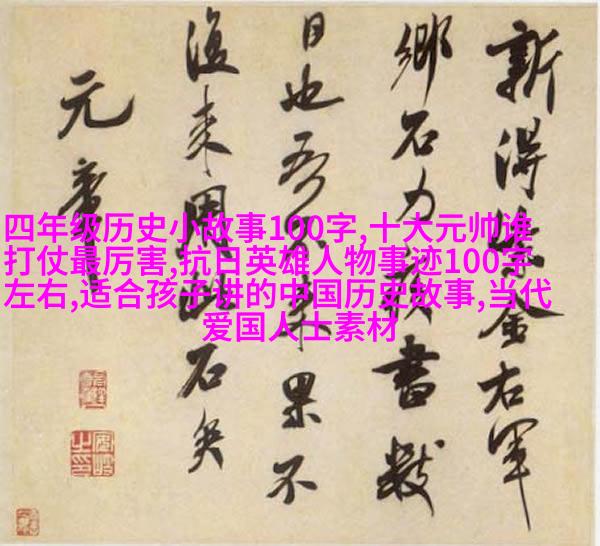 四年级历史小故事100字,十大元帅谁
打仗最厉害,抗日英雄人物事迹100字
左右,适合孩子讲的中国历史故事,当代
爱国人士素材
新得紫金右軍
鄉石力疾書數
日也吾不来果不
復来用此石矣
元章